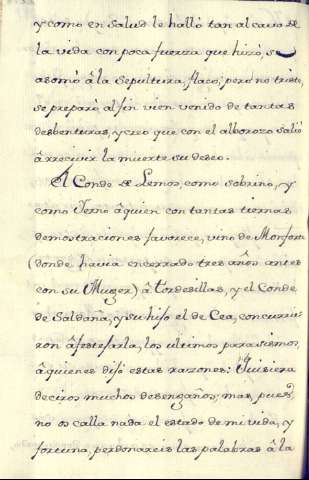 y como en salud le halló tan al cavo de
la vida con poca fuerza que hizó, se
asomó â la sepultura, flaco; pero no triste,
se preparó al fin vien venido de tantas
desbenturas, y creo que con el alborozo salió
â rrecivir la muerte su deseo.
El Conde de Lemos, como sobrino, y
como Yerno â quien con tantas tiernas
demostraciones favorece, vino de Monforte
(donde havia encerrado tres años antes
con su Muger) â Tordesillas, y el Conde
de Saldaña, y su hijo el de Cea, concurrie
ron â festejarla, los ultimos parasismos,
â quienes dijó estas razones: Quisiera
deciros muchos desengaños; mas, pues,
no os calla nada el estado de mi vida, y
fortuna, perdonareis las palabras â la